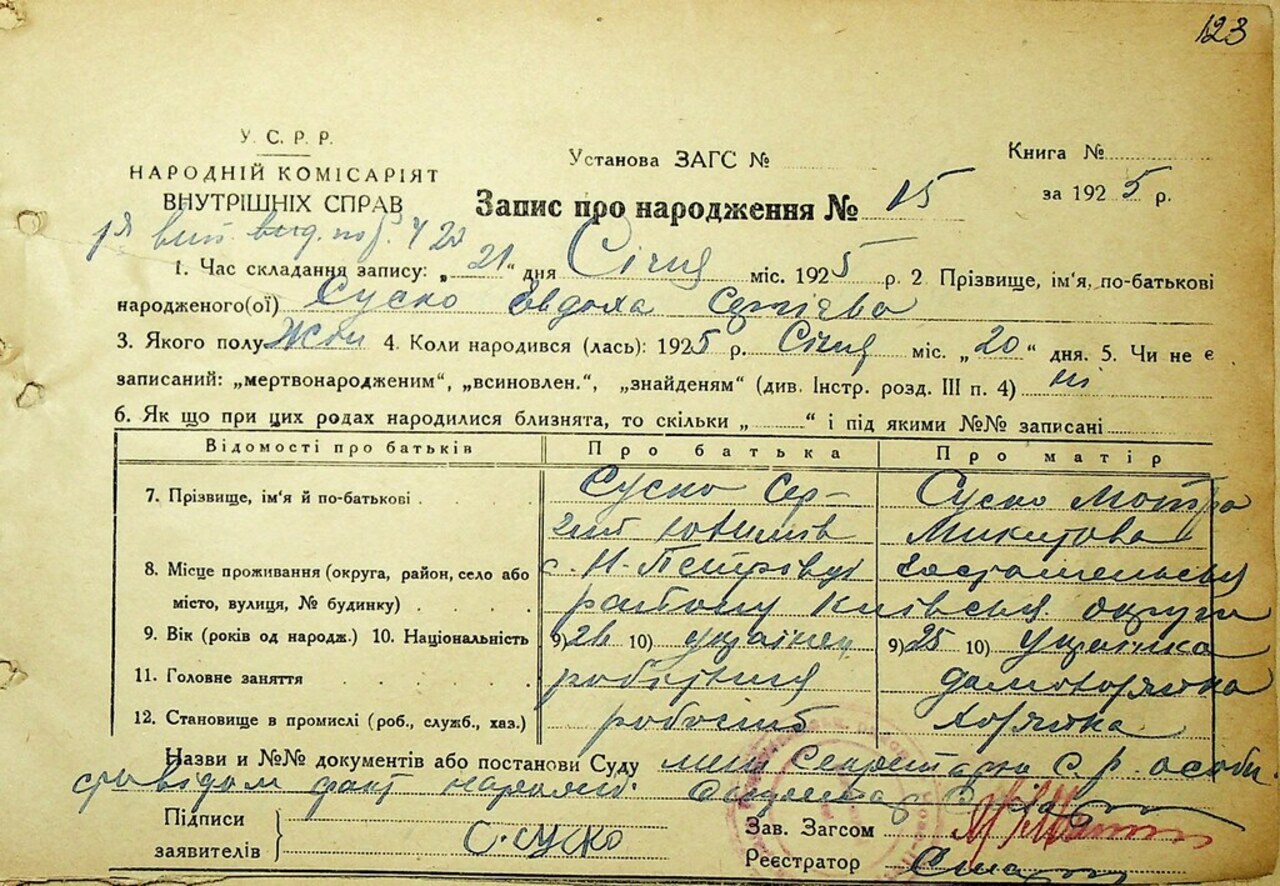 123
У. С. Р. Р.
НАРОДНІЙ КОМІСАРІЯТ
ВНУТРІШНІХ СПРАВ
Установа ЗАГС №
Книга №
Запис про народження № 15
за 1925 р.
1. Час складання запису: „21“ дня Січня міс. 1925 р. 2 Прізвище, ім‘я, по-батькові
народженого(ої) Суско Євдоха Сергієва
3. Якого полу Жін 4. Коли народився (лась): 1925 р. Січня міс. „20“ дня. 5. Чи не є
записаний: „мертвонародженим“, „всиновлен.“, „знайденям“ (див. Інстр. розд. III п. 4) ні
6. Як що при цих родах народилися близнята, то скільки „ “ і під якими №№ записані
Відомості про батьків Про батька Про матір
7. Прізвище, ім‘я й по-батькові Суско Сер- Суско Мотря
гій Микитова
8. Місце проживання (округа, район, село або с. Н-Петровці Гостомельськ
місто, вулиця, № будинку) району Київськ округи
9. Вік (років од народж.) 10. Національність 9) 26 10) українец 9) 25 10) Українка
11. Головне заняття робітник
12. Становище в промислі (роб., служб., хаз.)
Назви и №№ документів або постанови Суду Секретарю С. р. особи
факт
Підписи
заявителів С. Суско
Зав. Загсом
Реєстратор